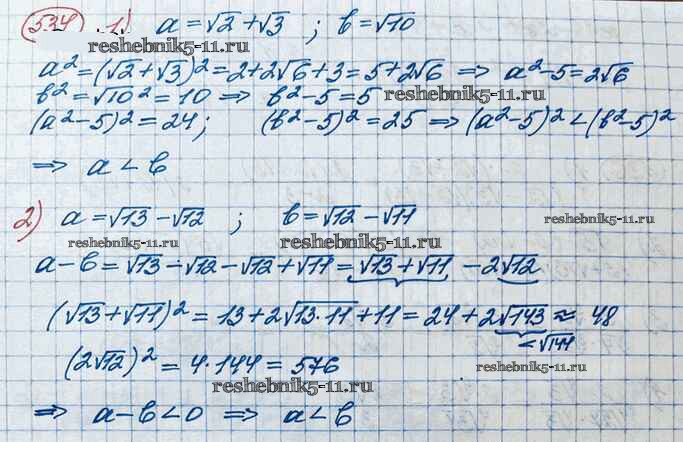 534 1) a = √2 + √3 ; b = √10
reshebnik5-11.ru
a² = (√2 + √3)² = 2 + 2√6 + 3 = 5 + 2√6 ⇒ a² - 5 = 2√6
b² = √10² = 10 ⇒ b² - 5 = 5 reshebnik5-11.ru
(a² - 5)² = 24; (b² - 5)² = 25 ⇒ (a² - 5)² < (b² - 5)²
reshebnik5-11.ru
⇒ a < b
2) a = √13 - √12 ; b = √12 - √11 reshebnik5-11.ru
reshebnik5-11.ru reshebnik5-11.ru
a - b = √13 - √12 - √12 + √11 = √13 + √11 - 2√12
(√13 + √11)² = 13 + 2√13·11 + 11 = 24 + 2√143 ≈ 48
< √144
(2√12)² = 4·144 = 576 reshebnik5-11.ru
reshebnik5-11.ru
⇒ a - b < 0 ⇒ a < b